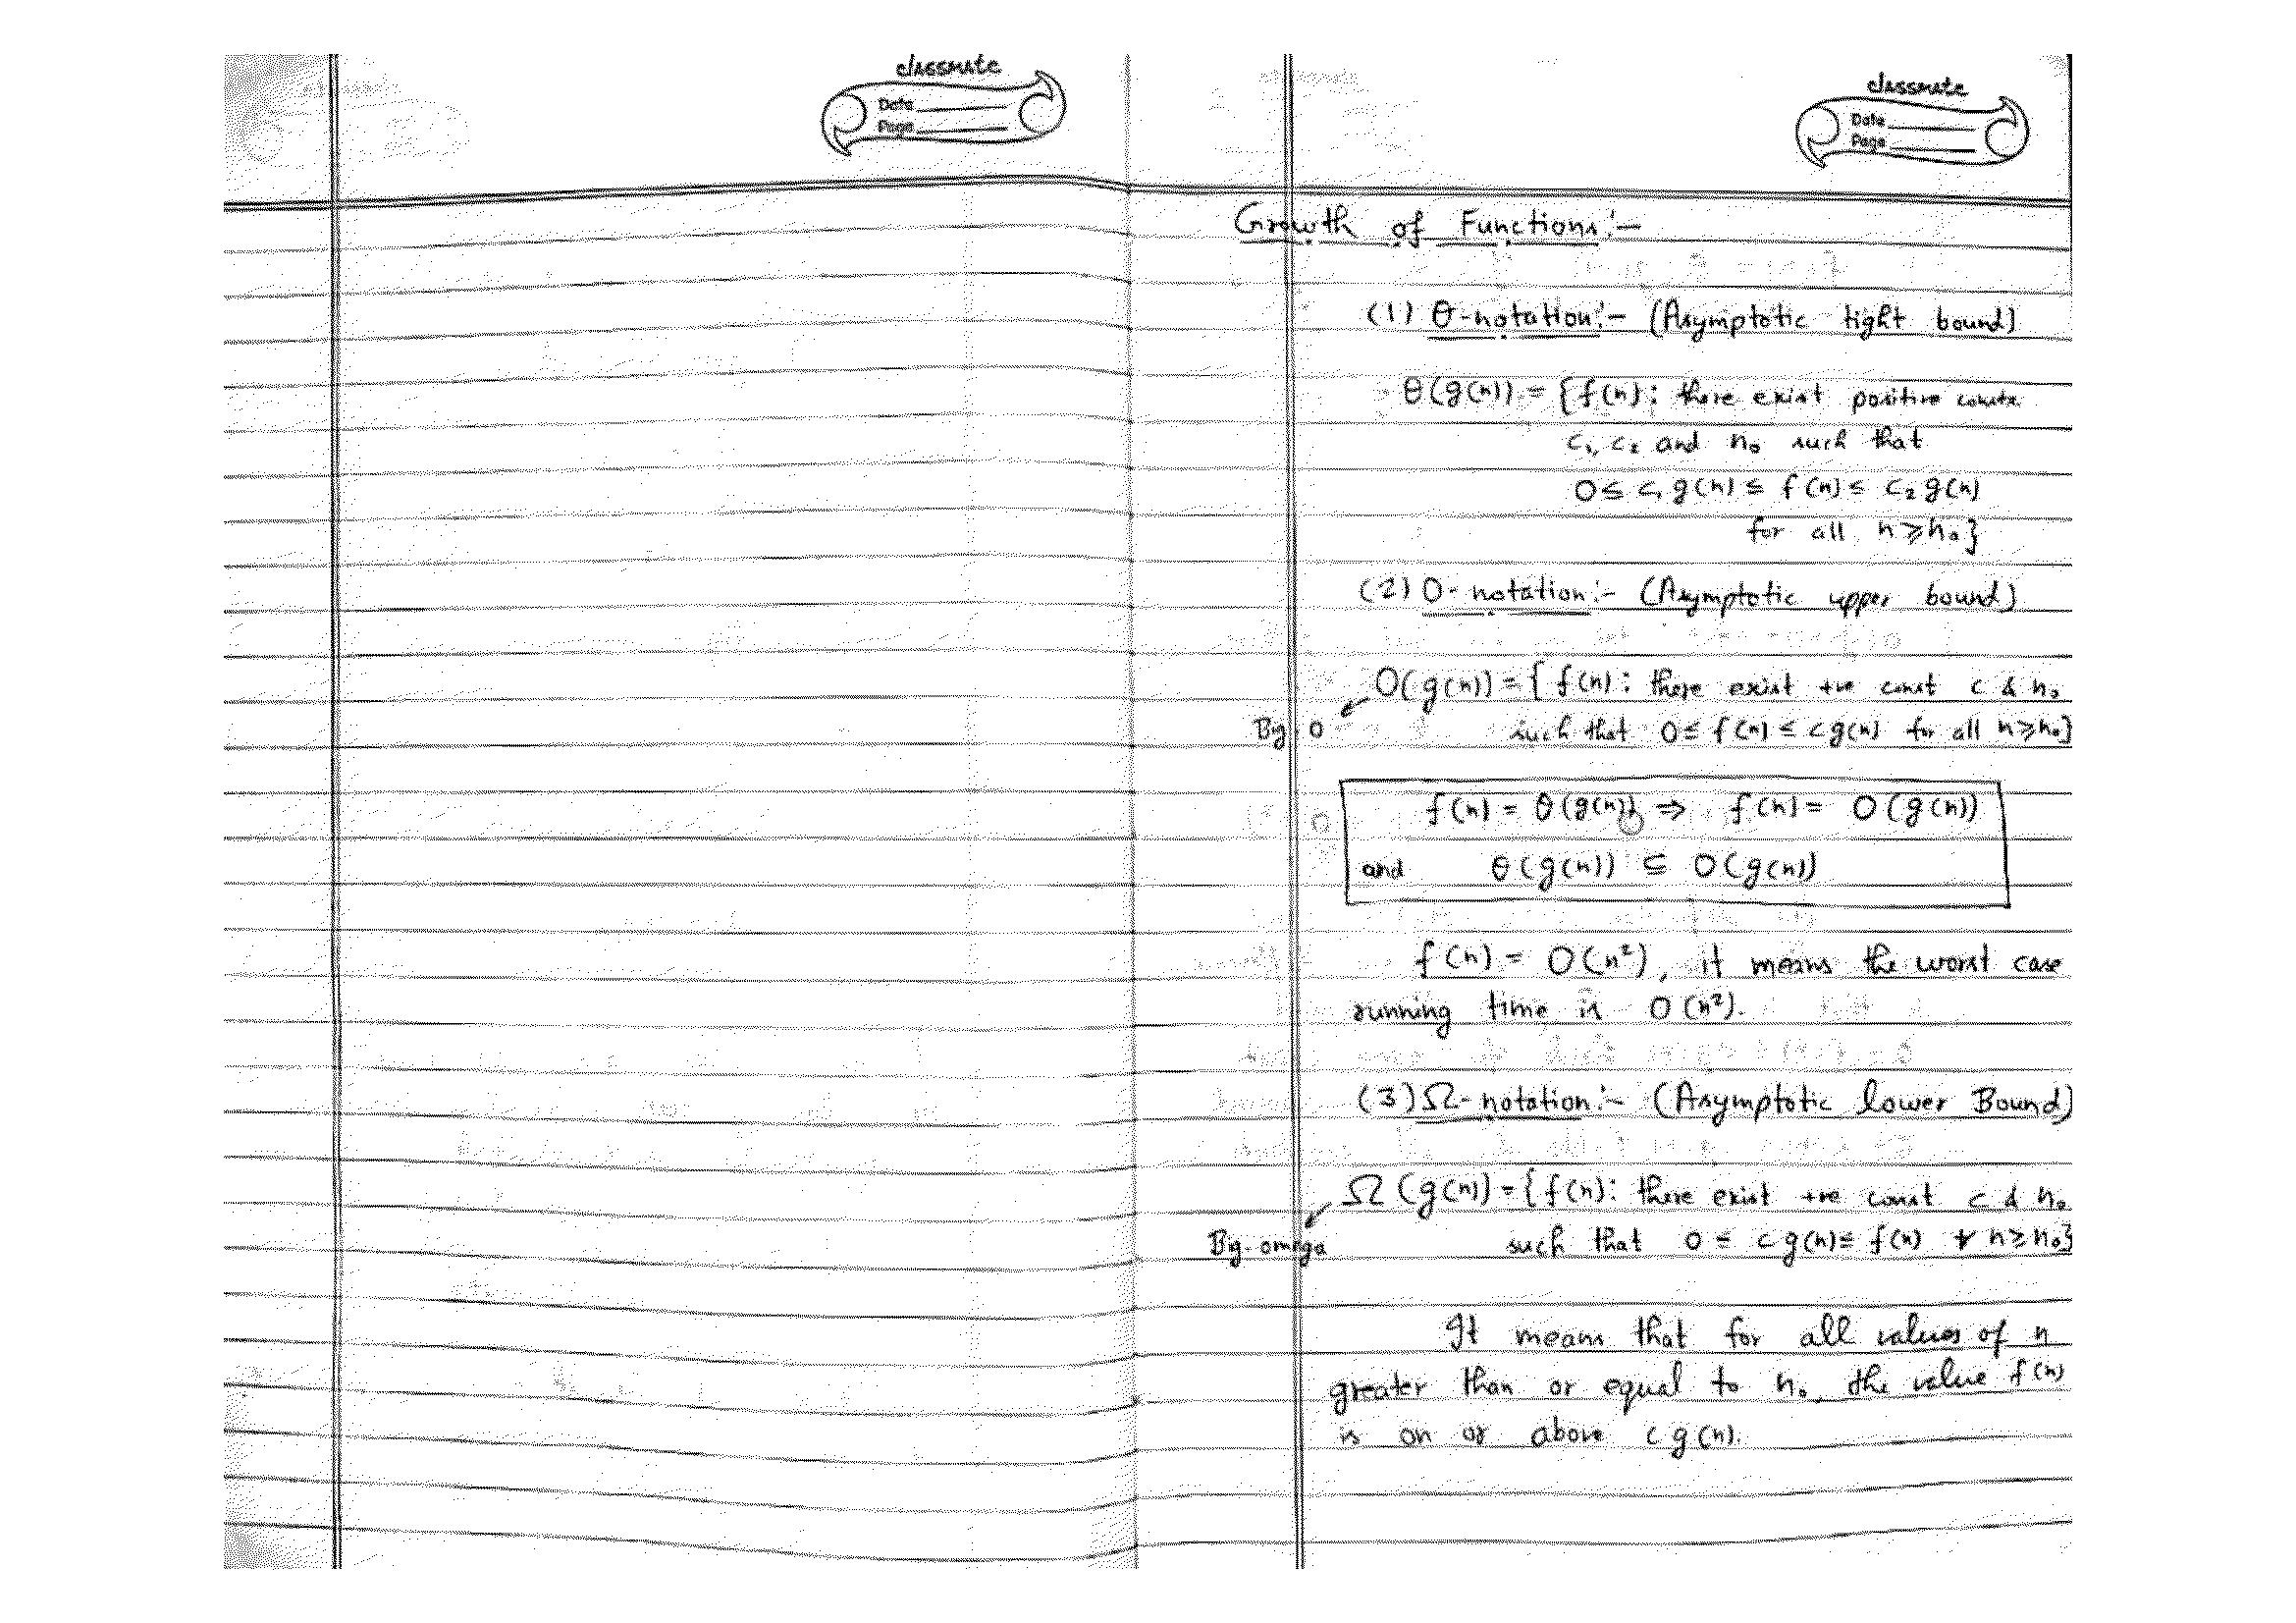 classmate
Date
Page
classmate
Date
Page
Growth of Functions:-
(1) θ-notation:- (Asymptotic tight bound)
θ(g(n)) = {f(n): there exist positive consts
c₁, c₂ and n₀ such that
0 ≤ c₁ g(n) ≤ f(n) ≤ c₂ g(n)
for all n ≥ n₀}
(2) O-notation:- (Asymptotic upper bound)
O(g(n)) = { f(n): there exist +ve const c & n₀
Big O such that 0 ≤ f(n) ≤ c g(n) for all n ≥ n₀}
f(n) = θ(g(n)) ⇒ f(n) = O(g(n))
and θ(g(n)) ⊆ O(g(n))
f(n) = O(n²), it means the worst case
running time is O(n²).
(3) Ω-notation:- (Asymptotic lower Bound)
Ω(g(n)) = {f(n): there exist +ve const c & n₀
Big-omega such that 0 ≤ c g(n) ≤ f(n) ∀ n ≥ n₀}
It means that for all values of n
greater than or equal to n₀ the value f(n)
is on or above c g(n).